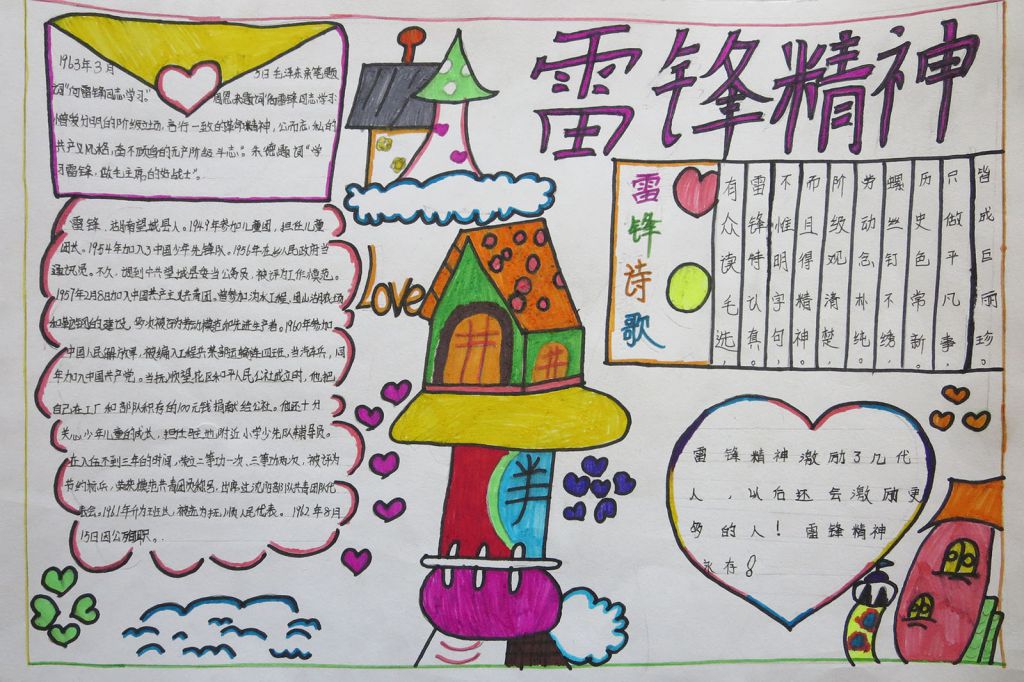 雷锋精神
1963年3月5日毛泽东亲笔题
词"向雷锋同志学习。"周恩来题词"向雷锋同志学习
憎爱分明的阶级立场,言行一致的革命精神,公而忘私的
共产主义风格,奋不顾身的无产阶级斗志。"朱德题词"学
习雷锋,做毛主席的好战士"。
雷锋,湖南省望城县人。1949年参加儿童团,担任儿童
团长。1954年加入中国少年先锋队。1956年在乡人民政府当
通讯员。不久,调到中共望城县委当公务员,被评为工作模范。
1957年2月8日加入中国共产主义共青团。曾参加沩水工程、
的建设,多次被评为劳动模范和先进生产者。1960年参加
中国人民解放军,被编入工程兵某部运输连四班,当汽车兵,同
年加入中国共产党。当抚顺望花区和平人民公社成立时,他把
自己在工厂和部队积存的100元钱捐献给公社。他还十分
关心少年儿童的成长,担任驻地附近小学少先队辅导员。
在入伍不到三年的时间,荣立二等功一次、三等功两次,被评为
节约标兵,荣获模范共青团员称号,出席过沈阳部队共青团代
表会。1961年升为班长,被选为抚顺人民代表。1962年8月
15日因公殉职。
Love
雷锋诗歌
有众读毛选,
雷锋特认真。
不惟明字句,
而且得精神。
阶级观清楚,
劳动念朴纯。
螺丝钉不锈,
历史色常新。
只做平凡事,
皆成巨丽珍。
雷锋精神激励了几代
人,以后还会激励更
多的人!雷锋精神
永存!